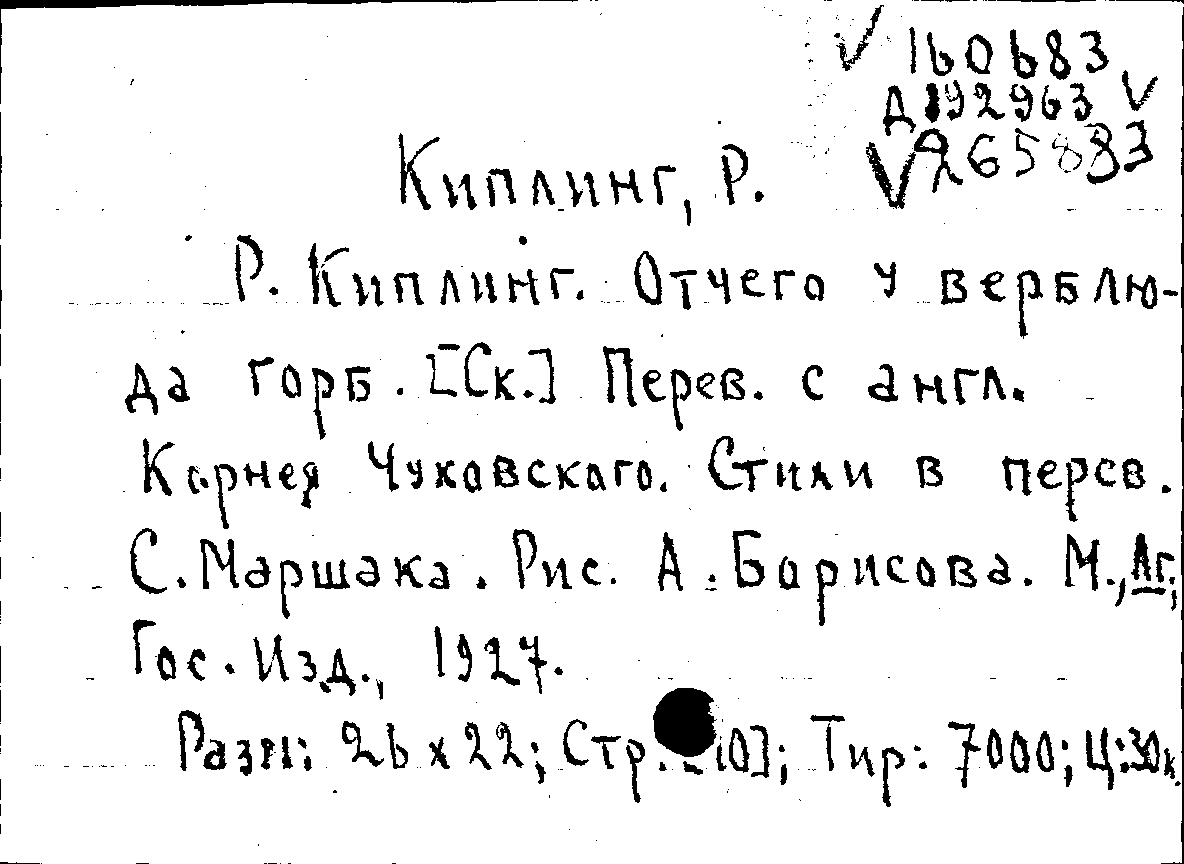 ✓ 160683
Д 192963 ✓
✓ 265883
Киплинг, Р.
Р. Киплинг. Отчего у верблю-
да горб. [Ск.] Перев. с англ.
Корнея Чуковского. Стихи в перев.
С. Маршака. Рис. А. Борисова. М., Лг,
Гос. Изд., 1927.
Разм: 26 x 22; Стр. [10]; Тир: 7000; Ц: 30к.